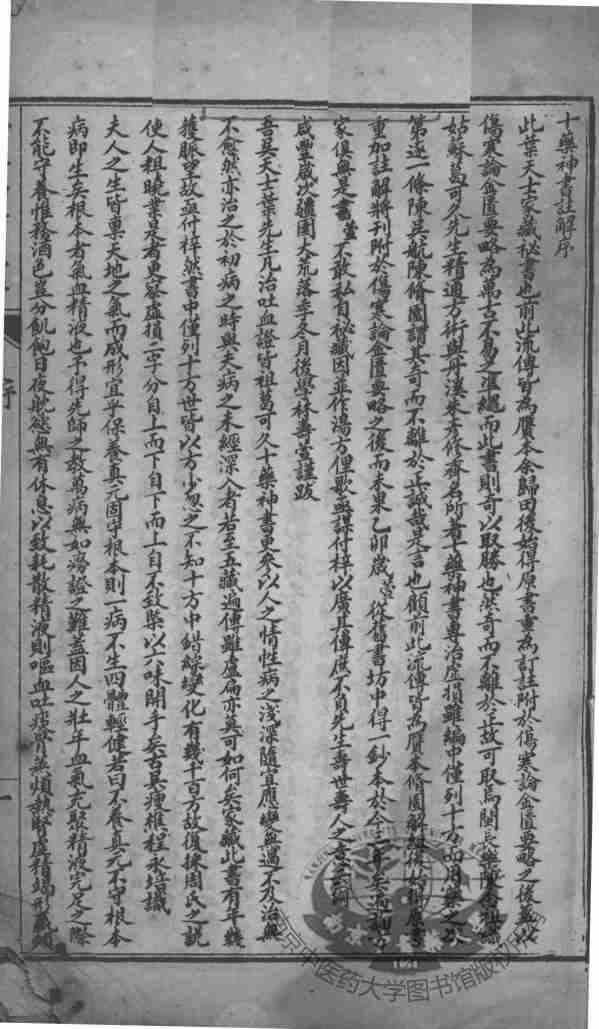 十藥神書註解序
此葉天士家藏祕書也前此流傳皆為贋本余歸田後始得原書重為訂註附於傷寒論金匱要略之後蓋以
傷寒論金匱要略為萬古不易之準繩而此書則奇以取勝也然奇而不離於正故可取焉閩長樂陳念祖
姑蘇葛可久先生精通方術與丹溪朱彥修齊名所著十藥神書專治虛損雖編中僅列十方而用藥之
第逐一條陳吳航陳修園謂其奇而不離於正誠哉是言也顧前此流傳皆為贋本修園解組後始得原書
重加註解將刊附於傷寒論金匱要略之後而未果乙卯歲壽萱從舊書坊中得一鈔本於今二年矣遍
家俱無是書萱不敢私自秘藏因並作湯方俚歌與謀付梓以廣其傳庶不負先生壽世壽人之意云
咸豐歲次疆圉大荒落季冬月後學林壽萱謹跋
吾吳天士葉先生凡治吐血證皆祖葛可久十藥神書更參以人之情性病之淺深隨宜應變無過不及治無
不愈然亦治之於初病之時與夫病之未經深入者若至五臟遍傳雖盧扁亦莫可如何矣家藏此書有年幾
獲脈望故亟付梓然書中僅列十方世皆以方少忽之不知十方中錯綜變化有幾千百方故復採周氏之說
使人粗曉業是者更察虛損二字分自上而下自下而上自不致概以六味開手矣古吳瘦樵程永培識
夫人之生皆稟天地之氣而成形宜乎保養真元固守根本則一病不生四體輕健若曰不養真元不守根本
病即生矣根本者氣血精液也予得先師之教萬病無如癆證之難蓋因人之壯年血氣充聚精液完足之際
不能守養惟務酒色豈分飢飽日夜耽慾無有休息以致耗散精液則嘔血吐痰骨蒸煩熱腎虛精竭形
序
一
南京中医药大学图书馆版权所有